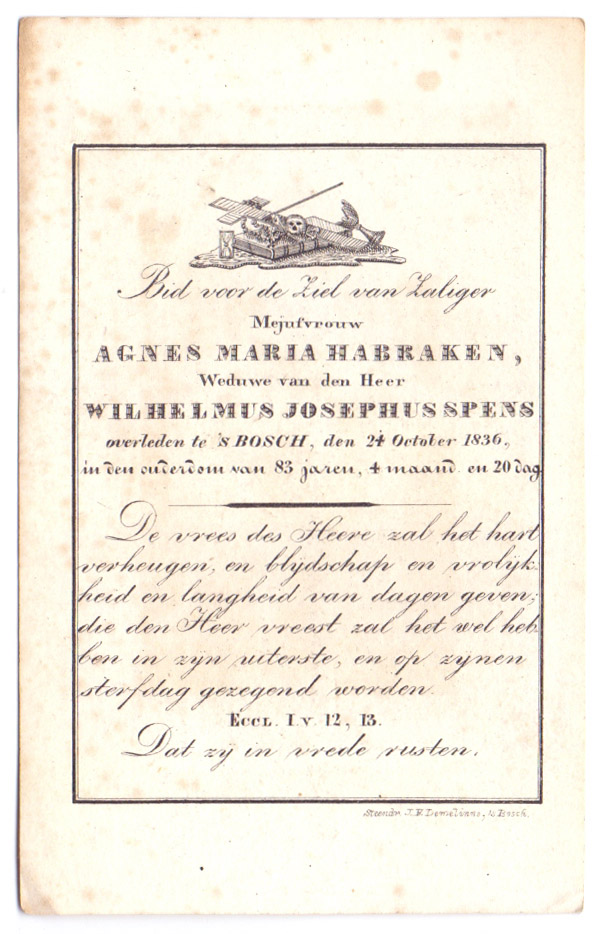 Bid voor de Ziel van Zaliger
Mejufvrouw
AGNES MARIA HABRAKEN,
Weduwe van den Heer
WILHELMUS JOSEPHUS SPENS
overleden te 'S BOSCH, den 24 October 1836,
in den ouderdom van 83 jaren, 4 maand. en 20 dag
De vrees des Heere zal het hart
verheugen, en blijdschap en vrolijk-
heid en langheid van dagen geven;
die den Heer vreest zal het wel heb-
ben in zijn uiterste, en op zijnen
sterfdag gezegend worden.
ECCL. I. v. 12, 13.
Dat zij in vrede rusten.
Steendr. J. F. Demelinne, 's Bosch.